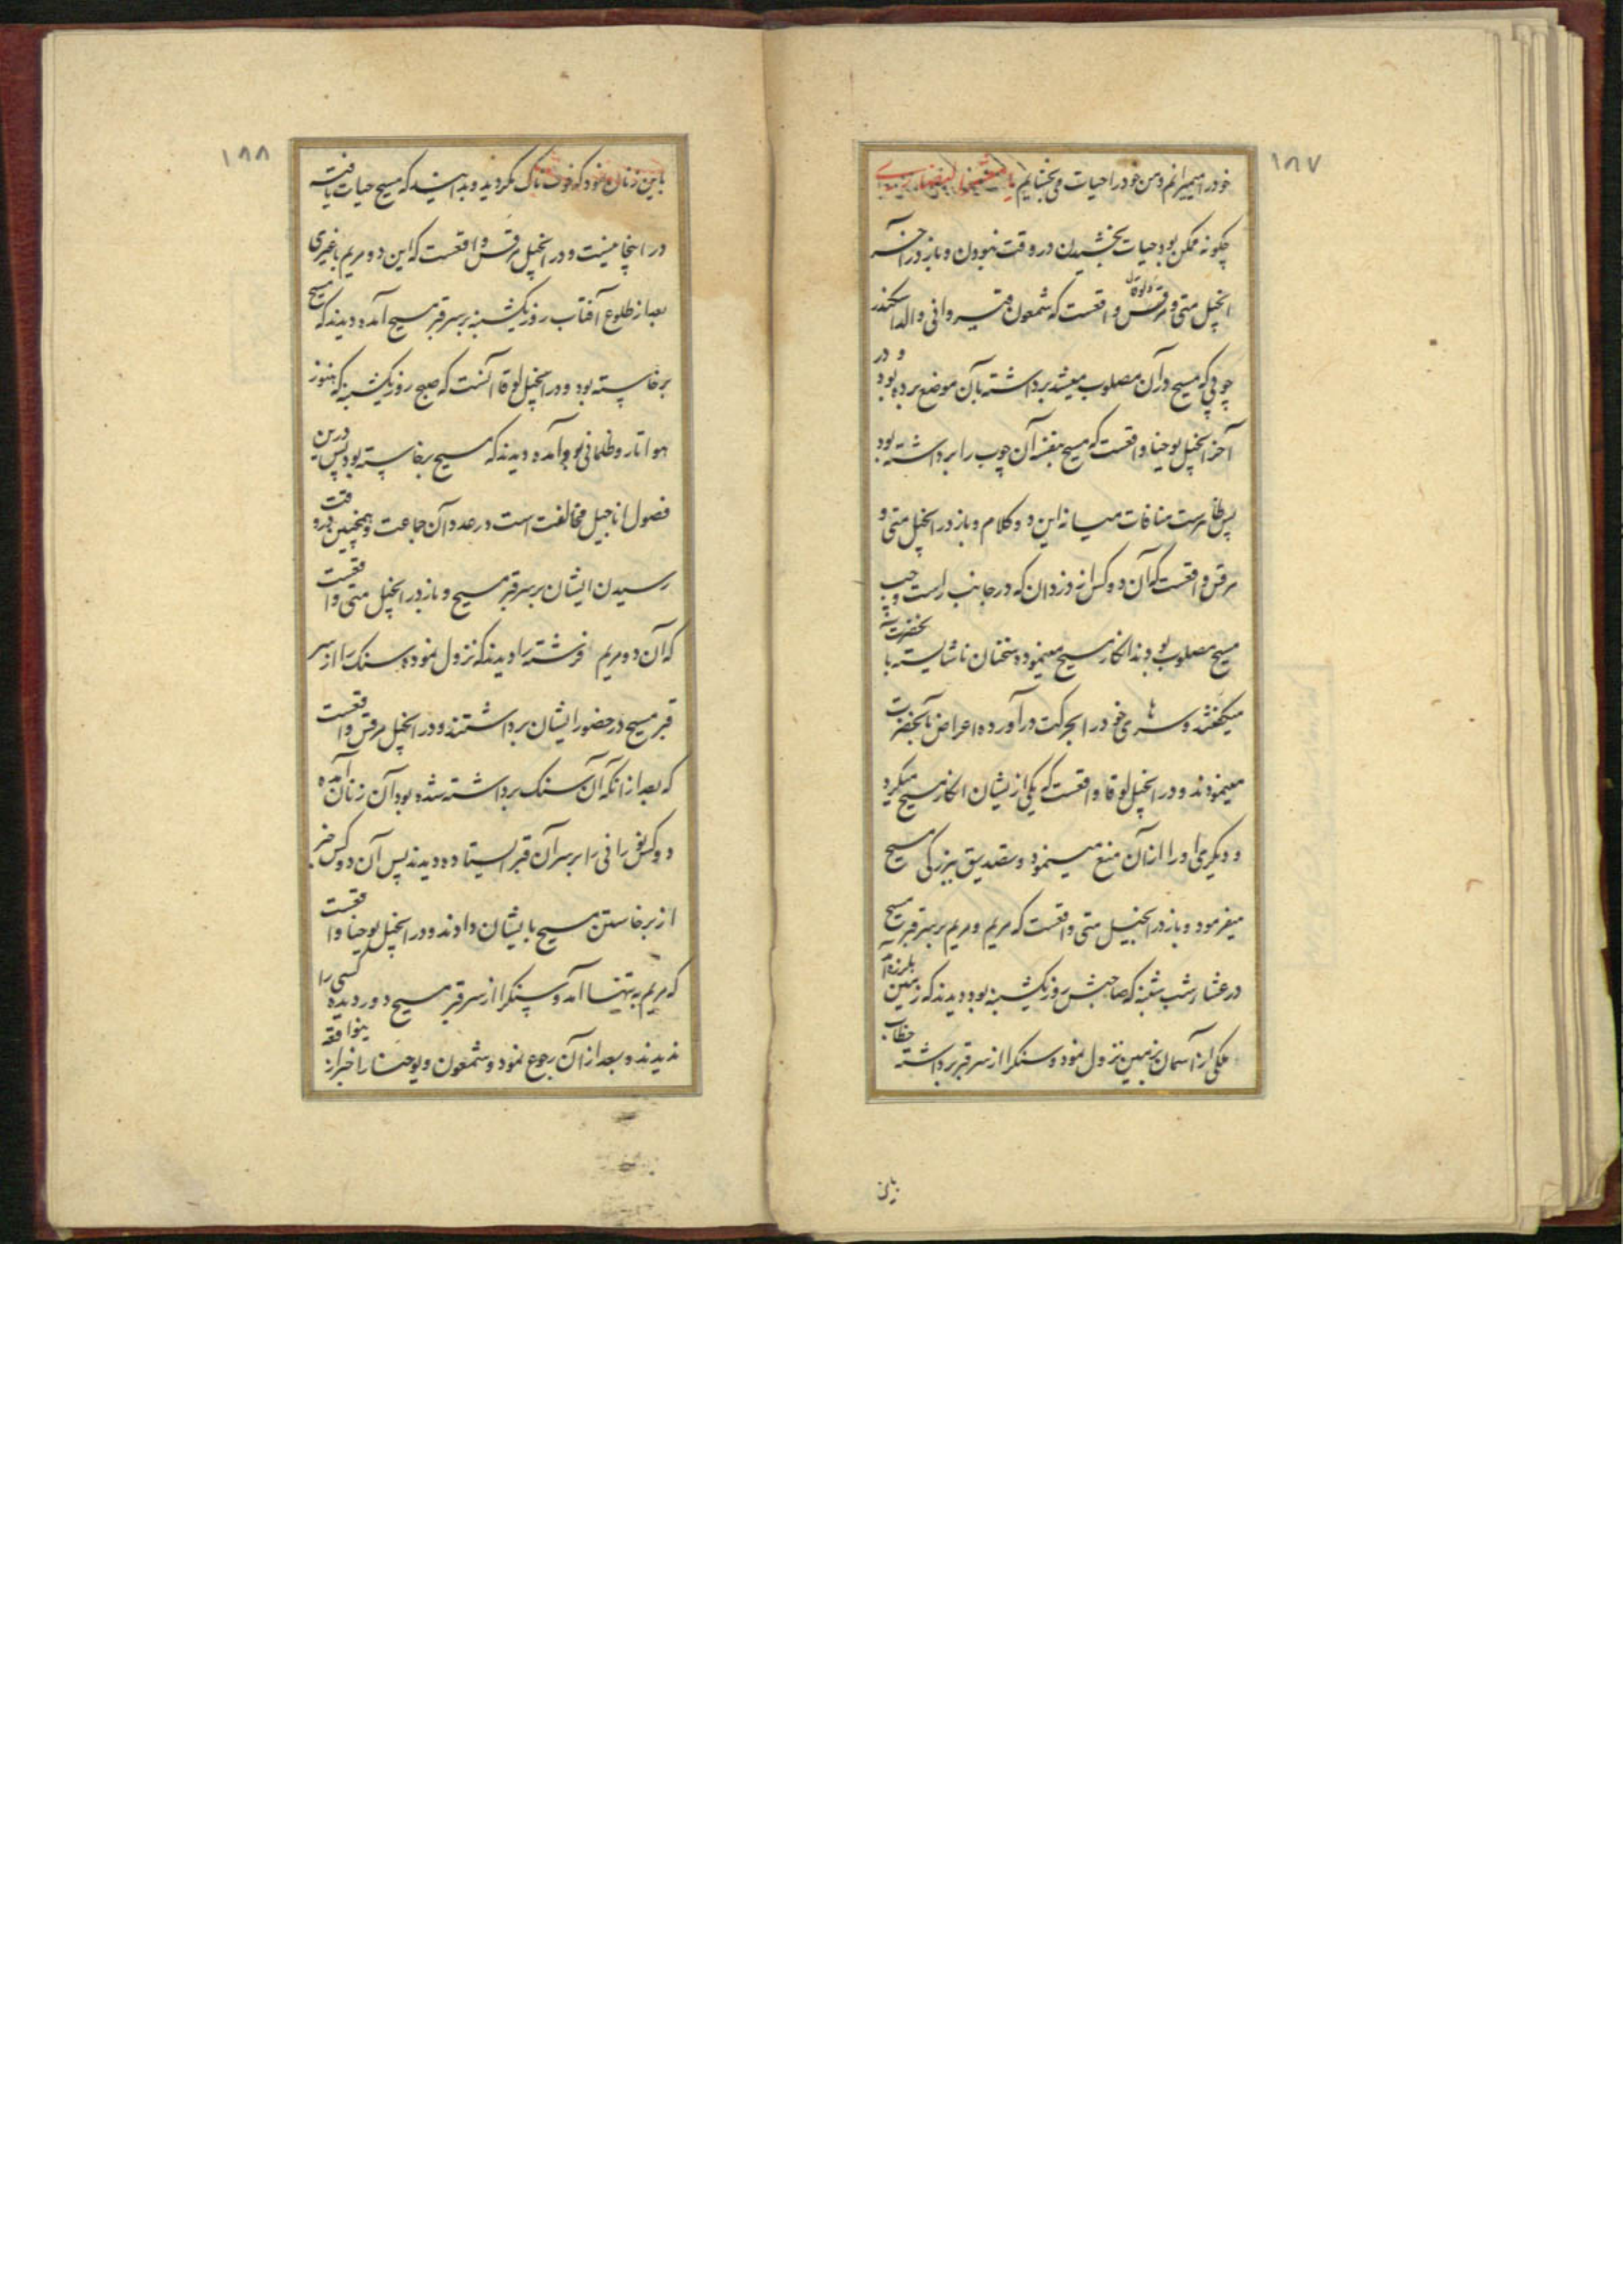 ۱۸۷
خود را میمیرانم و من خود را حیات می بخشایم یا معشر النصاری
چکونه ممکن بود حیات بخشیدن در وقت نبودن و باز در آخر
انجیل متی و مرقس و لوقا واقعست که شمعون قیروانی والد اسکندر
چوبی که مسیح در آن مصلوب میشد برداشته بآن موضع برده بود و در
آخر انجیل یوحنا واقعست که مسیح بنفسه آن چوب را برداشته بود
پس ظاهرست منافات میانه این دو کلام و باز در انجیل متی و
مرقس واقعست که آن دو کس از دزدان که در جانب راست و چپ
مسیح مصلوب بودند انکار مسیح مینموده و سخنان ناشایسته با آنحضرت
میکفتند و سرهای خود را بحرکت در آورده اعراض بآنحضرت
مینمودند و در انجیل لوقا واقعست که یکی از یشان انکار مسیح میکرد
و دیکری او را از آن منع مینمود و تصدیق بزرکی مسیح
میفرمود و باز در انجیل متی واقعست که مریم و مریم بر سر قبر مسیح
در عشار شب شنبه که صاحبش روز یکشنبه بود دیدند که زمین بلرزه آمد
ملکی از آسمان بزمین نزول نمود و سنک را از سر قبر برداشته خطاب
باین
۱۸۸
باین زنان نمود که خوف ناک نکردید و بدانید که مسیح حیات یافته
در اینجا نیست و در انجیل مرقس واقعست که این دو مریم با غیری
بعد از طلوع آفتاب روز یکشنبه بر سر قبر مسیح آمده دیدند که مسیح
برخاسته بود و در انجیل لوقا آنست که صبح روز یکشنبه که هنوز
هوا تار و ظلمانی بود آمده دیدند که مسیح برخاسته بود پس درین
فصول اناجیل مخالفت است در عدد آن جماعت و همچنین در وقت
رسیدن ایشان بر سر قبر مسیح و باز در انجیل متی واقعست
که آن دو مریم فرشته را دیدند که نزول نموده سنک را از سر
قبر مسیح در حضور ایشان برداشتند و در انجیل مرقس واقعست
که بعد از انکه آن سنک برداشته شده بود آن زنان آمده
دو کس نورانی را بر سر آن قبر ایستاده دیدند پس آن دو کس خبر
از برخاستن مسیح بایشان دادند و در انجیل یوحنا واقعست
که مریم به تنها آمد و سنک را از سر قبر مسیح دور دیده کسی را
ندیدند و بعد از آن رجوع نمود و شمعون و یوحنا را خبر از ینواقعه